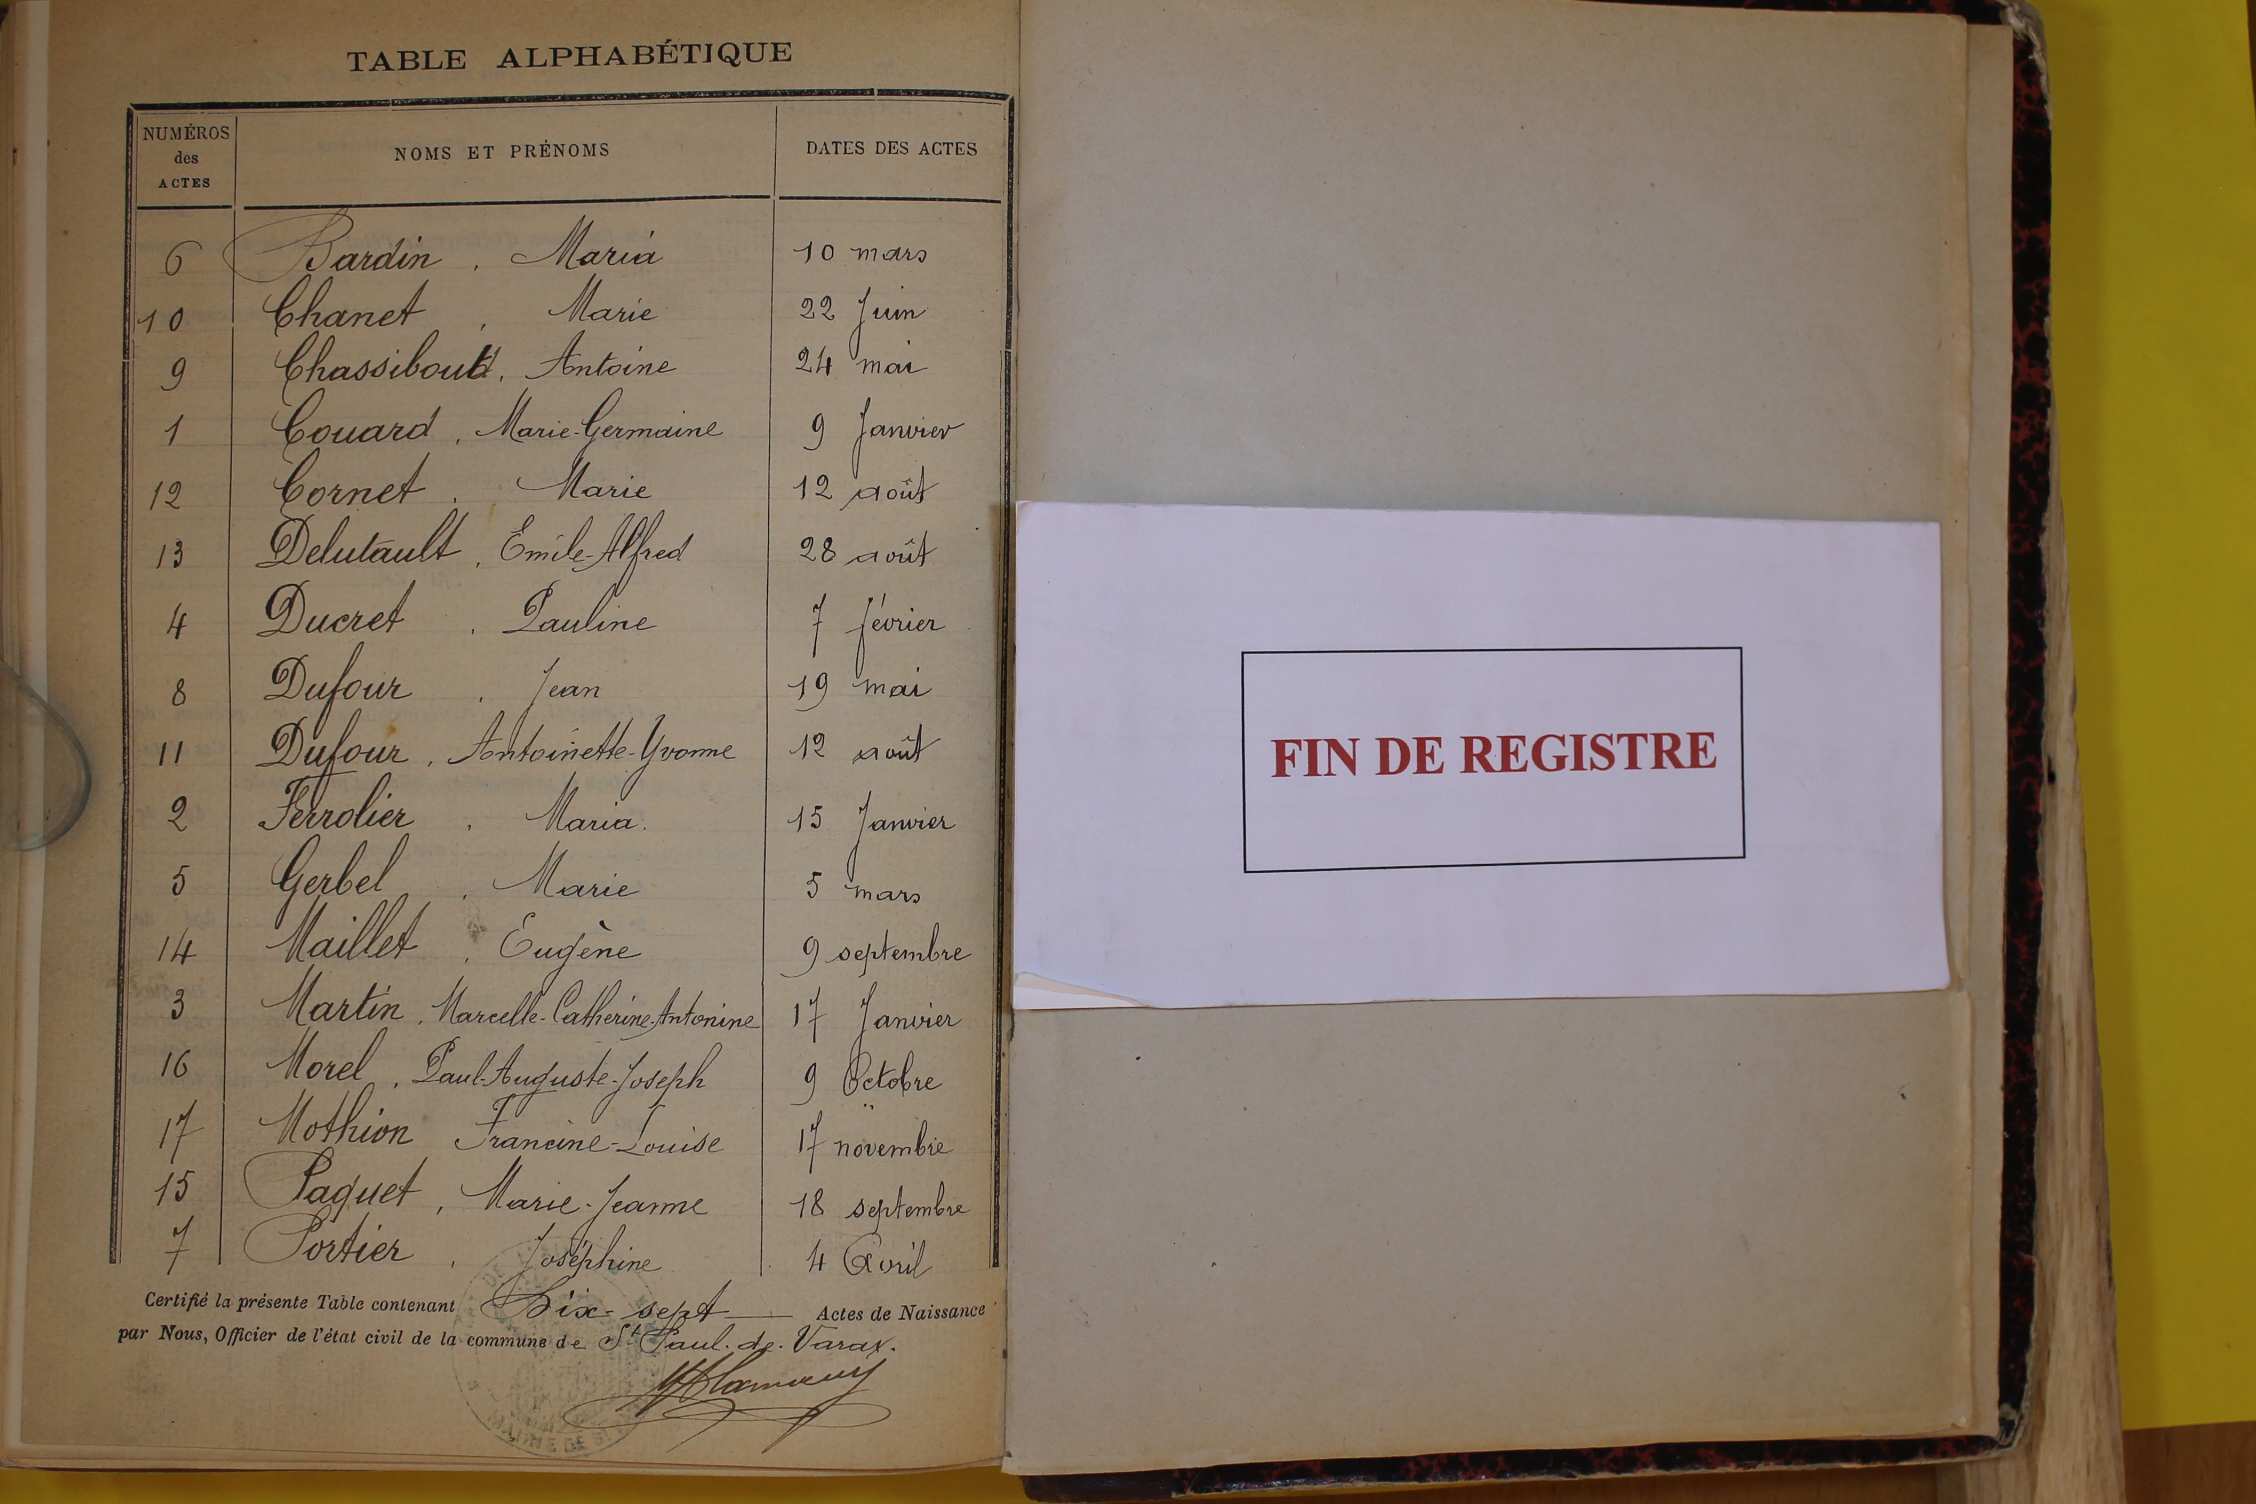 TABLE ALPHABÉTIQUE
NUMÉROS des ACTES NOMS ET PRÉNOMS DATES DES ACTES
6 Bardin, Maria 10 mars
10 Chanet, Marie 22 Juin
9 Chassiboud, Antoine 24 mai
1 Couard, Marie-Germaine 9 Janvier
12 Cornet, Marie 12 août
13 Delutault, Emile-Alfred 28 août
4 Ducret, Pauline 7 février
8 Dufour, Jean 19 mai
11 Dufour, Antoinette-Yvonne 12 août
2 Ferrolier, Maria. 15 Janvier
5 Gerbel, Marie 5 mars
14 Maillet, Eugène 9 septembre
3 Martin, Marcelle-Catherine-Antonine 17 Janvier
16 Morel, Paul-Auguste-Joseph 9 Octobre
17 Mothion Francine-Louise 17 novembre
15 Paquet, Marie-Jeanne 18 septembre
7 Portier, Joséphine 4 Avril
Certifié la présente Table contenant Dix-sept Actes de Naissance
par Nous, Officier de l'état civil de la commune de St Paul-de-Varax.
MAIRIE DE
FIN DE REGISTRE